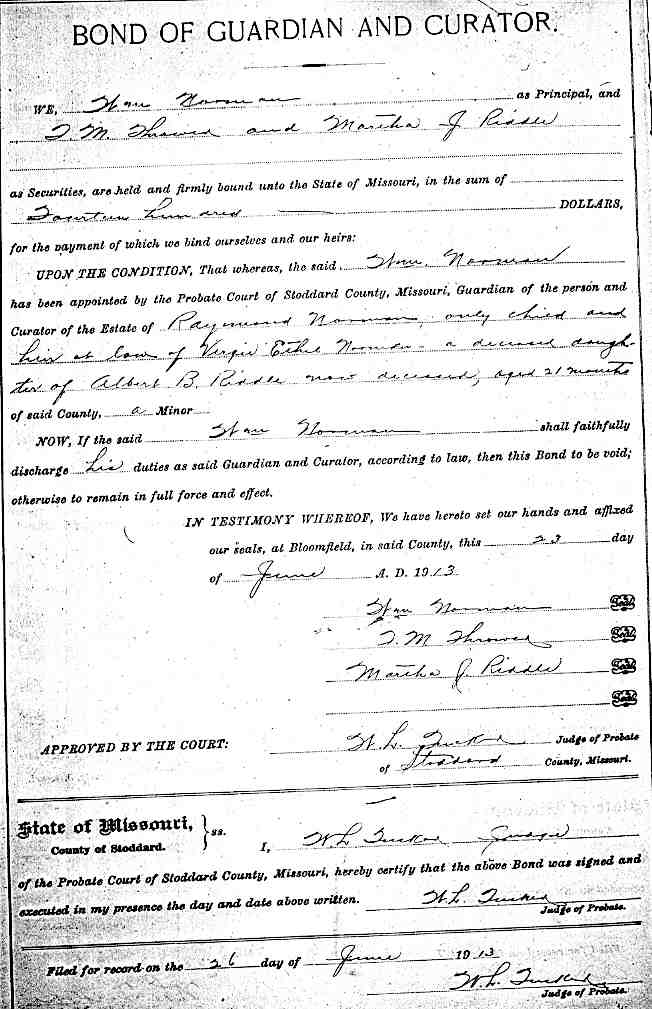 BOND OF GUARDIAN AND CURATOR.
WE, Wm Norman as Principal, and
T. M. Thrower and Martha J. Riddle
as Securities, are held and firmly bound unto the State of Missouri, in the sum of
Fourteen hundred DOLLARS,
for the payment of which we bind ourselves and our heirs:
UPON THE CONDITION, That whereas, the said Wm. Norman
has been appointed by the Probate Court of Stoddard County, Missouri, Guardian of the person and
Curator of the Estate of Raymond Norman, only child and
heir at law of Virgie Ethel Norman - a deceased daugh-
ter of Albert B. Riddle now deceased, aged 21 months
of said County, a Minor
NOW, If the said Wm Norman shall faithfully
discharge his duties as said Guardian and Curator, according to law, then this Bond to be void;
otherwise to remain in full force and effect.
IN TESTIMONY WHEREOF, We have hereto set our hands and affixed
our seals, at Bloomfield, in said County, this 23 day
of June A. D. 1913
Wm Norman Seal
T. M Thrower Seal
Martha J. Riddle Seal
Seal
APPROVED BY THE COURT: W. L. Tucker Judge of Probate
of Stoddard County, Missouri.
State of Missouri, } ss.
County of Stoddard. I, W L Tucker Judge
of the Probate Court of Stoddard County, Missouri, hereby certify that the above Bond was signed and
executed in my presence the day and date above written. W. L. Tucker
Judge of Probate.
Filed for record on the 26 day of June 1913
W. L. Tucker
Judge of Probate.